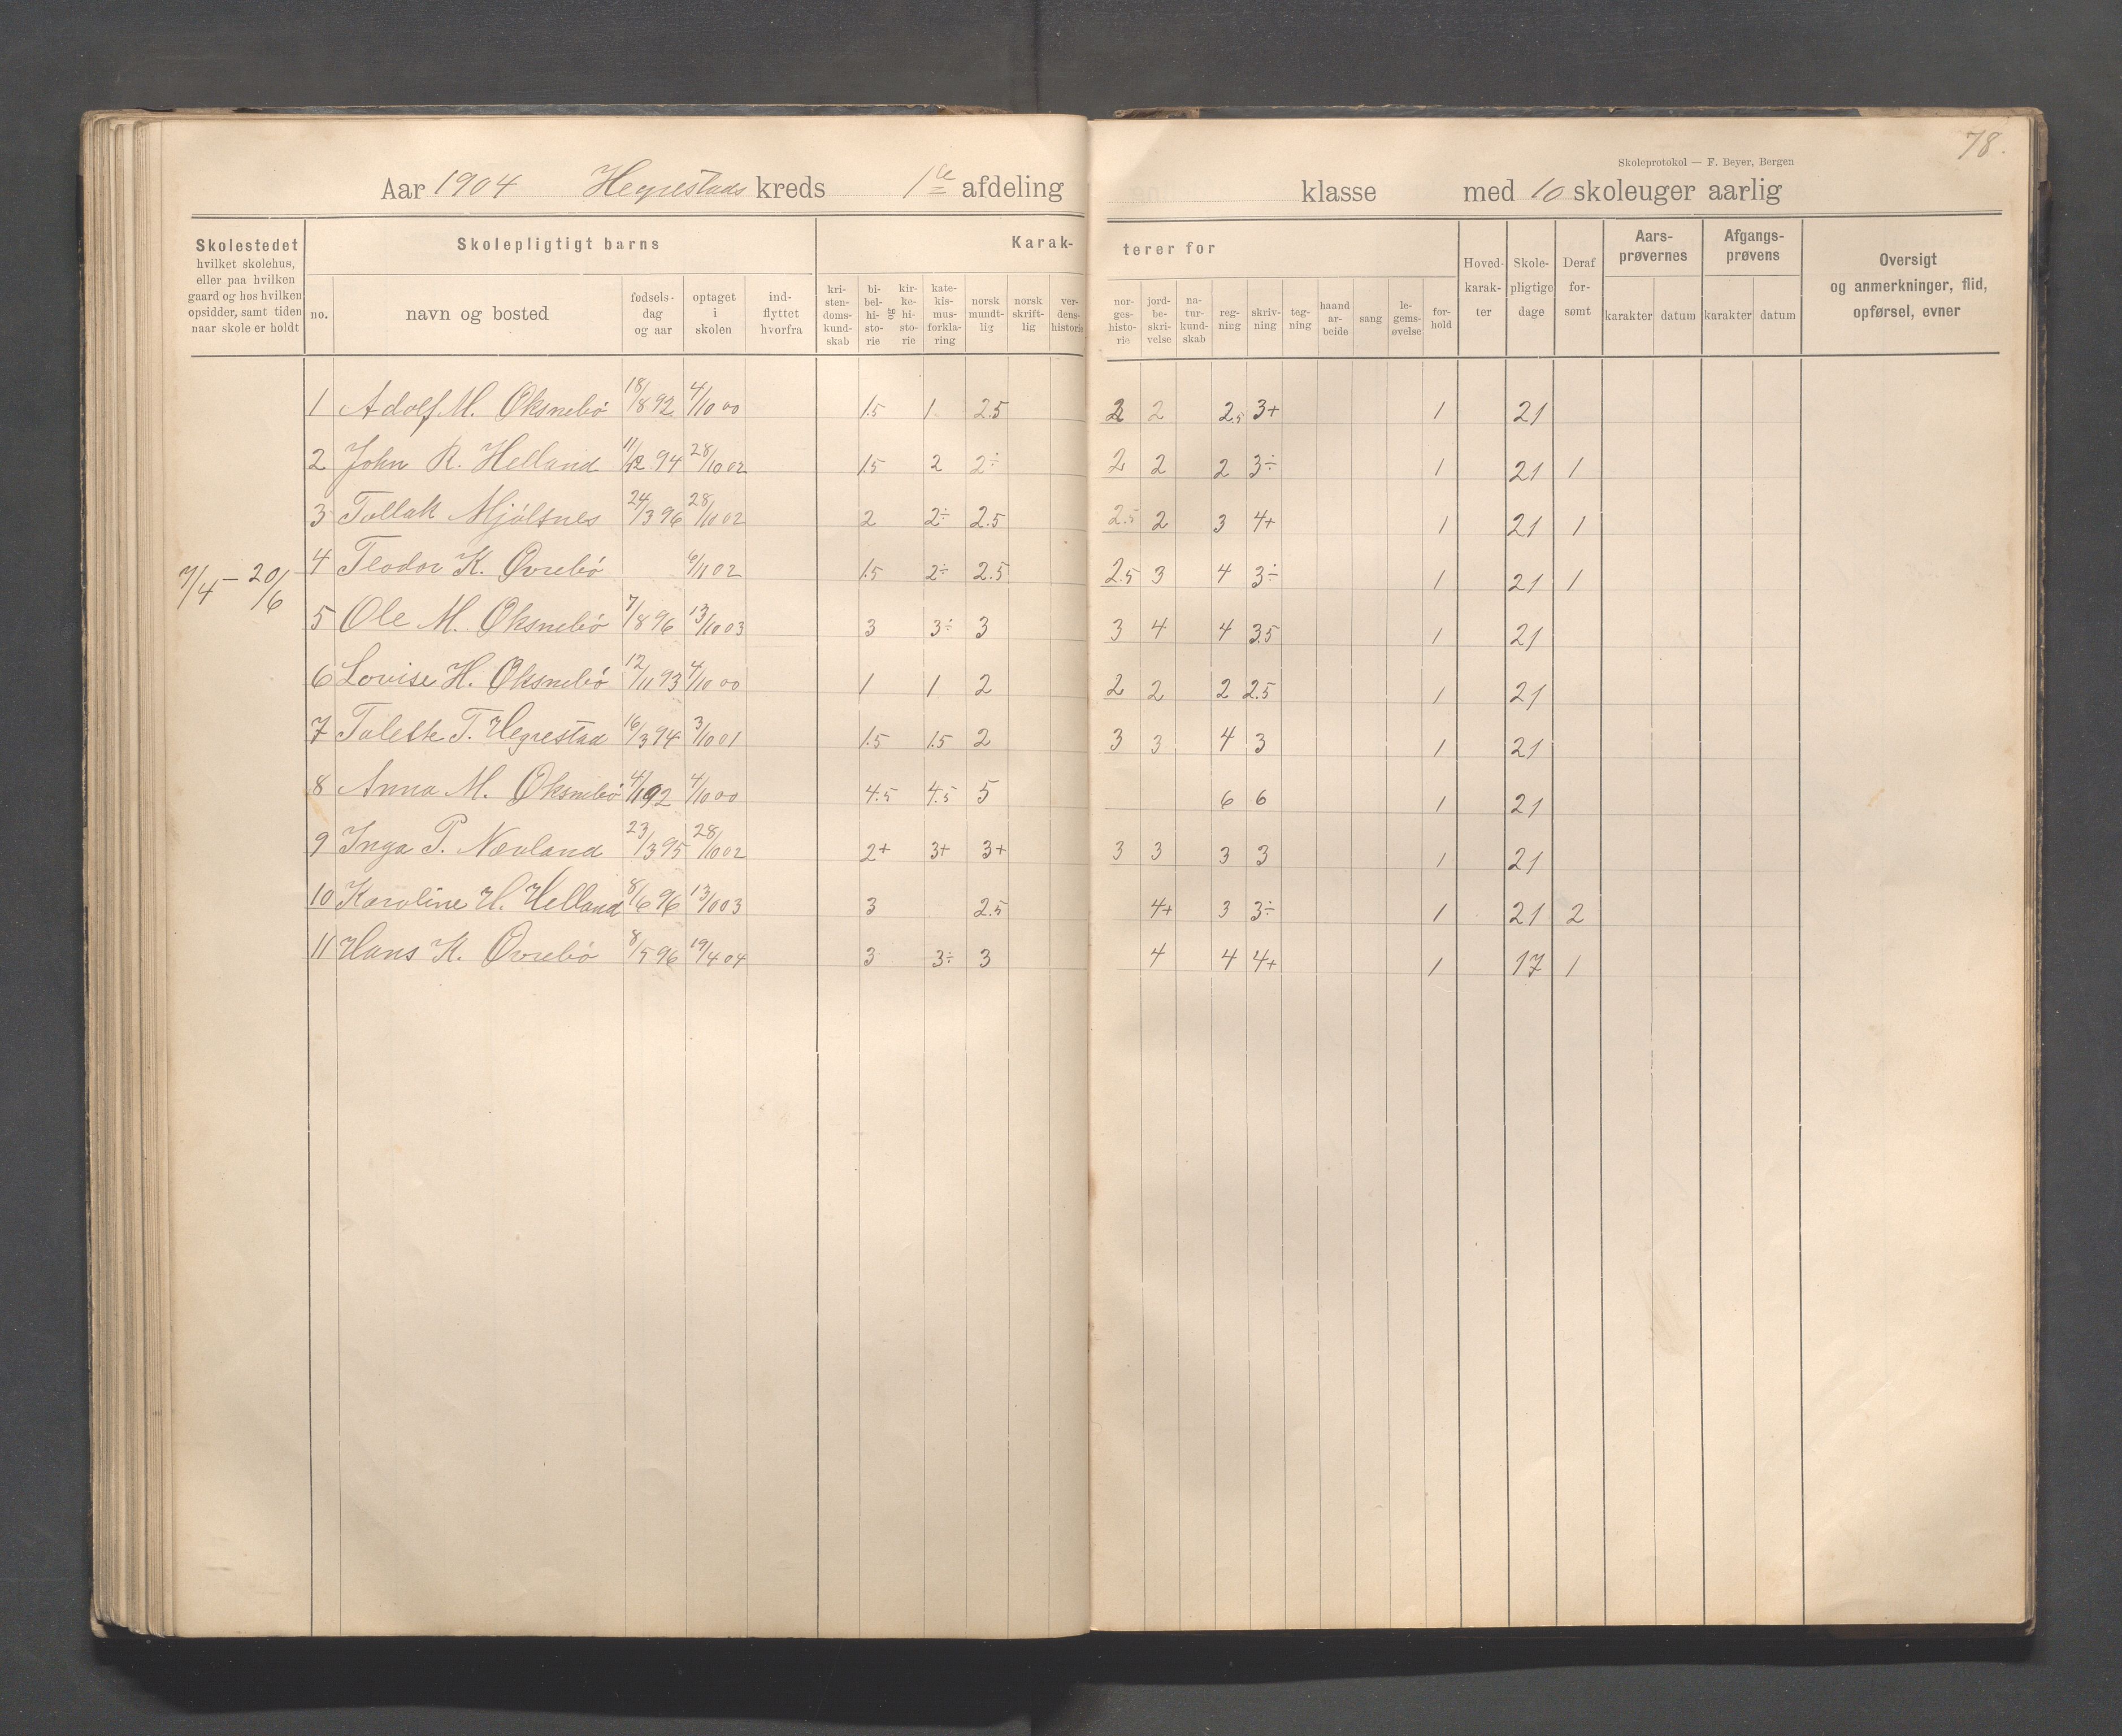 78.
Skoleprotokol — F. Beyer, Bergen
Aar 1904 Hegrestads kreds 1ste afdeling klasse med 10 skoleuger aarlig
Skolestedet hvilket skolehus, eller paa hvilken gaard og hos hvilken opsidder, samt tiden naar skole er holdt
Skolepligtigt barns
Karakterer for
no.
navn og bosted
fødselsdag og aar
optaget i skolen
indflyttet hvorfra
kristendomskundskab
bibelhistorie
og
kirkehistorie
katekismusforklaring
norsk mundtlig
norsk skriftlig
verdenshistorie
norgeshistorie
jordbeskrivelse
naturkundskab
regning
skrivning
tegning
haandarbeide
sang
legemsøvelse
forhold
Hovedkarakter
Skolepligtige dage
Deraf forsømt
Aarsprøvernes karakter datum
Afgangsprøvens karakter datum
Oversigt og anmerkninger, flid, opførsel, evner
1 Adolf M. Øksnebø 18/8 92 4/10 00 1.5 1 2.5 2 2 2.5 3+ 1 21
2 John R. Helland 11/12 94 28/10 02 1.5 2 2÷ 2 2 2 3÷ 1 21 1
3 Tollak Mjølsnes 24/3 96 28/10 02 2 2÷ 2.5 2.5 2 3 4+ 1 21 1
7/4 – 20/6
4 Teodor K. Øvrebø 6/11 02 1.5 2÷ 2.5 2.5 3 4 3÷ 1 21 1
5 Ole M. Øksnebø 7/8 96 13/10 03 3 3÷ 3 3 4 4 3.5 1 21
6 Lovise H. Øksnebø 12/11 93 4/10 00 1 1 2 2 2 2 2.5 1 21
7 Talette T. Hegrestad 16/3 94 3/10 01 1.5 1.5 2 3 3 4 3 1 21
8 Anna M. Øksnebø 4/1 92 4/10 00 4.5 4.5 5 6 6 1 21
9 Inga P. Nævland 23/3 95 28/10 02 2+ 3+ 3+ 3 3 3 3 1 21
10 Karoline H. Helland 8/6 96 13/10 03 3 2.5 4+ 3 3÷ 1 21 2
11 Hans K. Øvrebø 8/5 96 19/4 04 3 3÷ 3 4 4 4+ 1 17 1